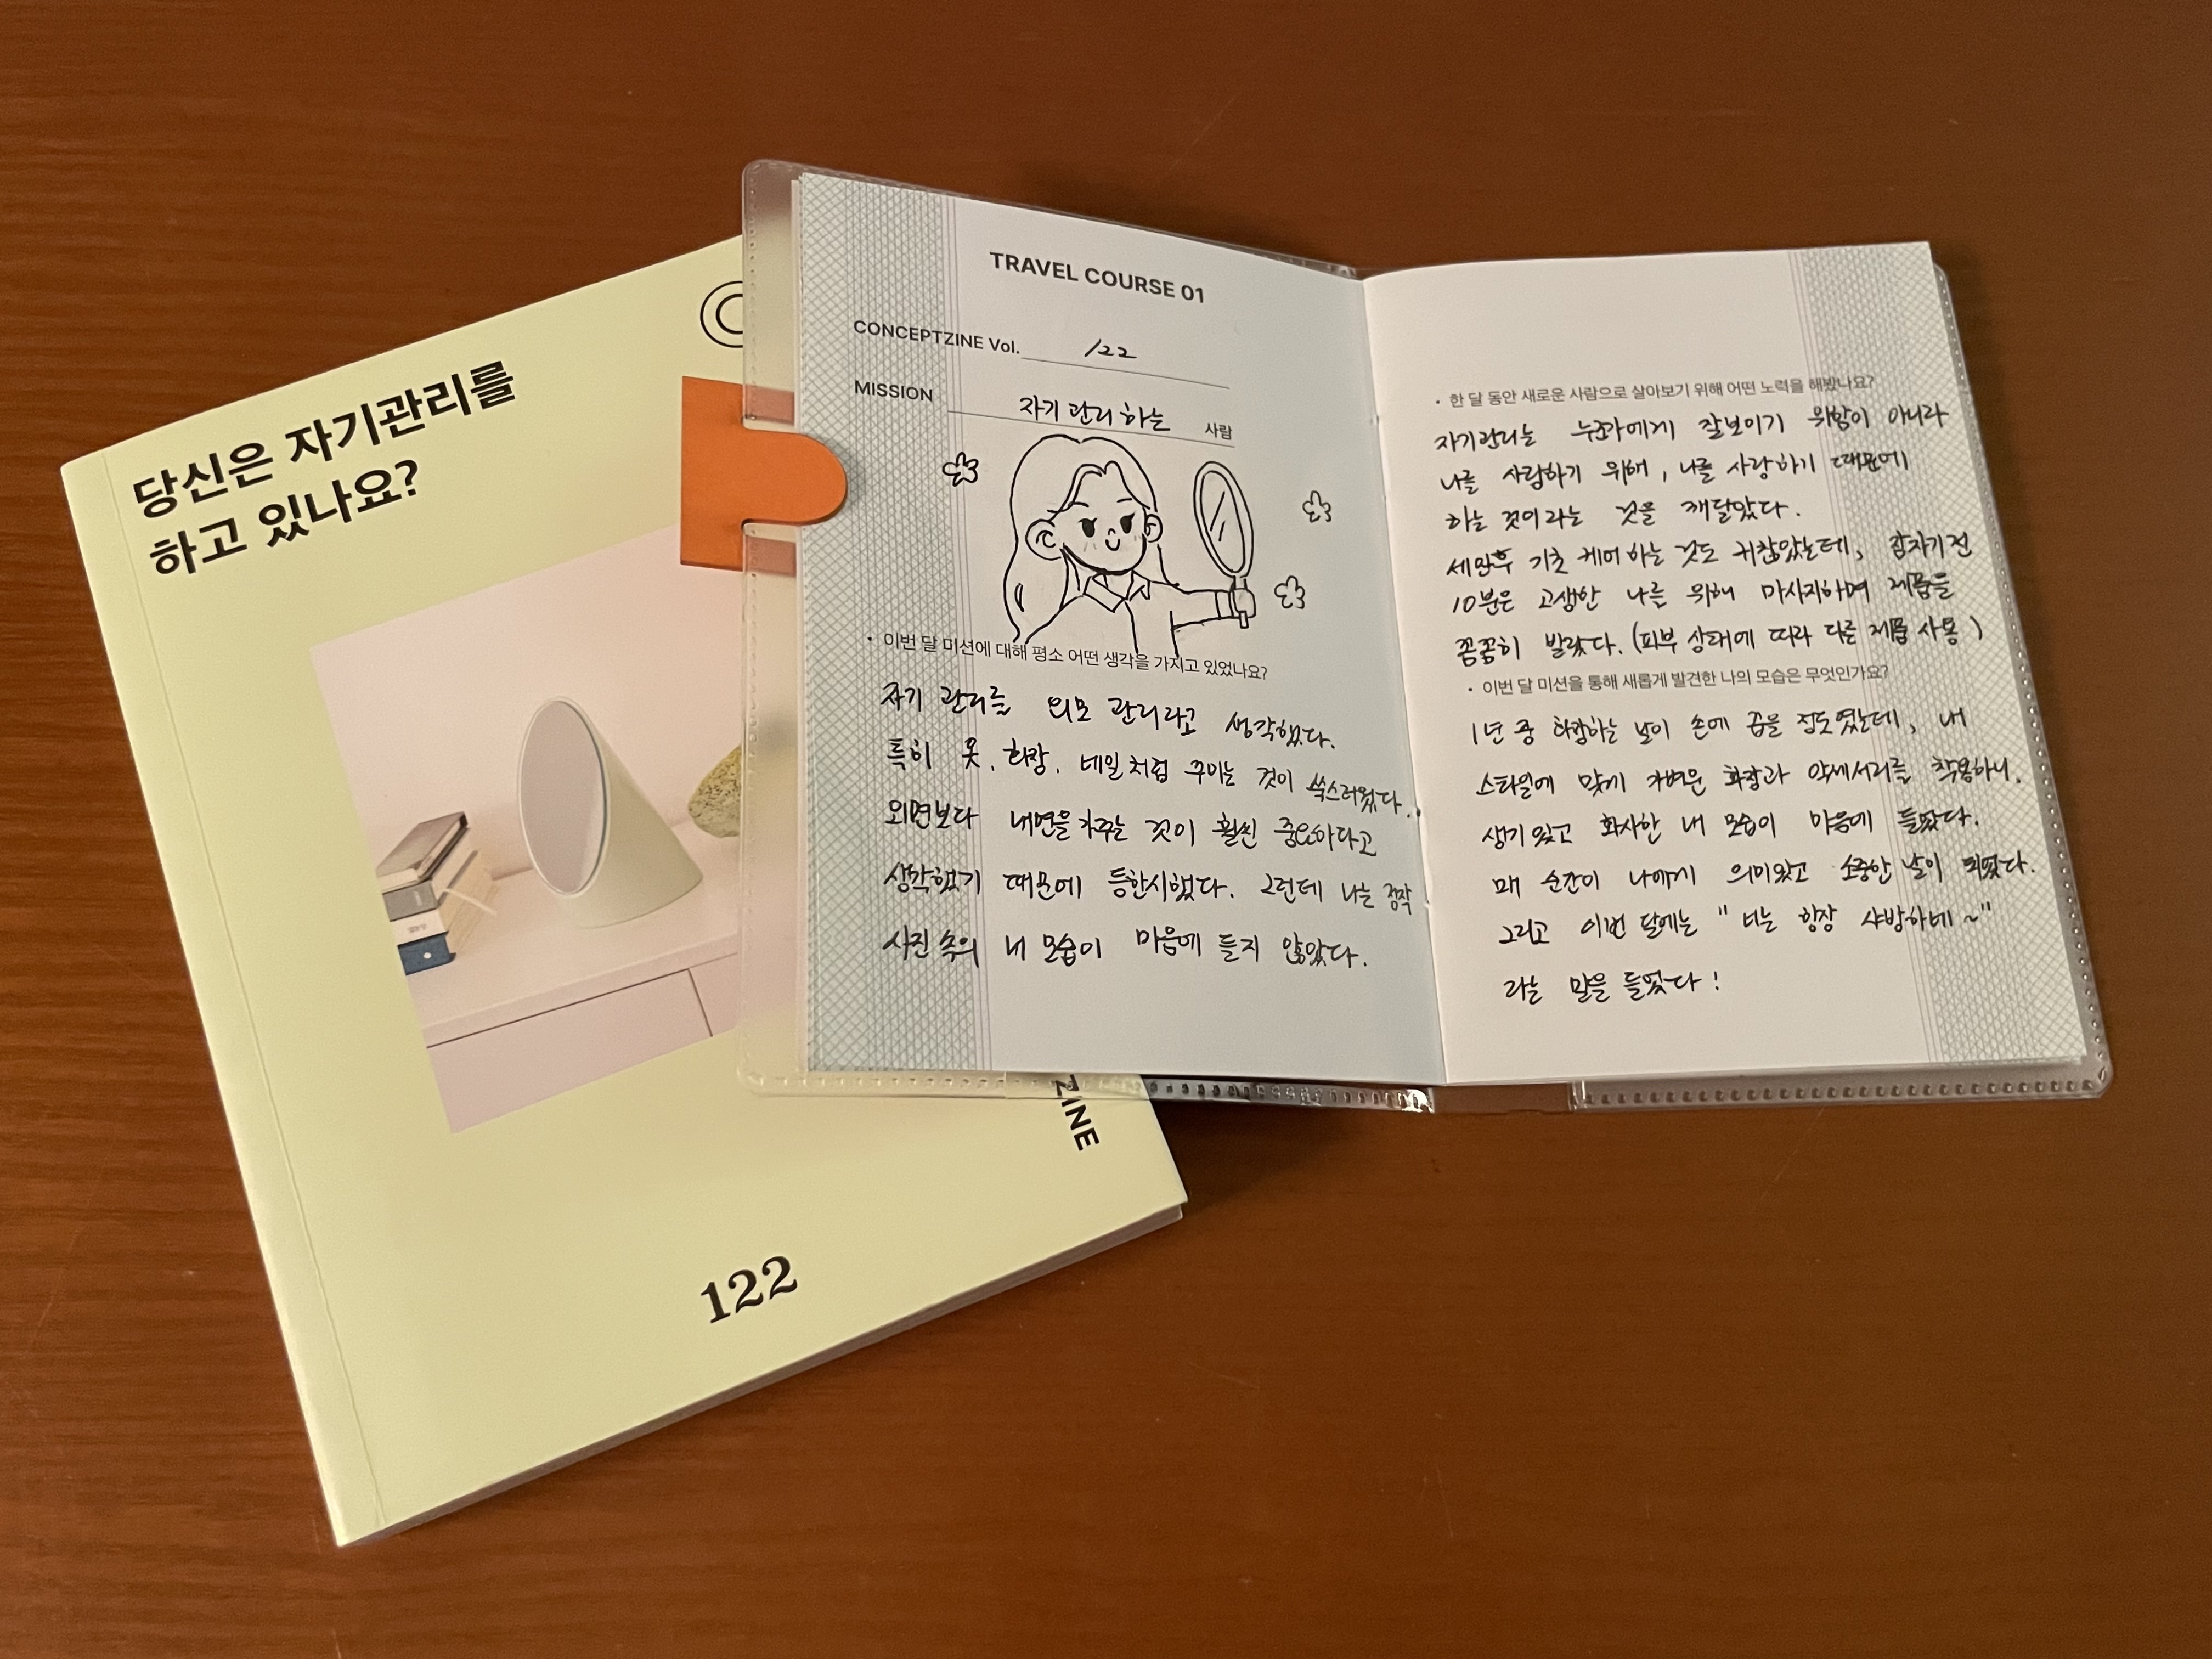 당신은 자기관리를
하고 있나요?
ZINE
122
TRAVEL COURSE 01
CONCEPTZINE Vol. 122
MISSION 자기 관리 하는 사람
• 이번 달 미션에 대해 평소 어떤 생각을 가지고 있었나요?
자기 관리를 외모 관리라고 생각했다.
특히 옷, 화장, 네일처럼 꾸미는 것이 쑥스러웠다.
외면보다 내면을 가꾸는 것이 훨씬 중요하다고
생각했기 때문에 등한시했다. 그런데 나는 정작
사진 속의 내 모습이 마음에 들지 않았다.
• 한 달 동안 새로운 사람으로 살아보기 위해 어떤 노력을 해봤나요?
자기관리는 누군가에게 잘보이기 위함이 아니라
나를 사랑하기 위해, 나를 사랑하기 때문에
하는 것이라는 것을 깨달았다.
세안후 기초 케어하는 것도 귀찮았는데, 잠자기전
10분은 고생한 나를 위해 마사지하며 제품을
꼼꼼히 발랐다. (피부 상태에 따라 다른 제품 사용)
• 이번 달 미션을 통해 새롭게 발견한 나의 모습은 무엇인가요?
1년 중 화장하는 날이 손에 꼽을 정도였는데, 내
스타일에 맞게 가벼운 화장과 악세서리를 착용하니,
생기있고 화사한 내 모습이 마음에 들었다.
매 순간이 나에게 의미있고 소중한 날이 되었다.
그리고 이번 달에는 "너는 항상 샤방하네~"
라는 말을 들었다!